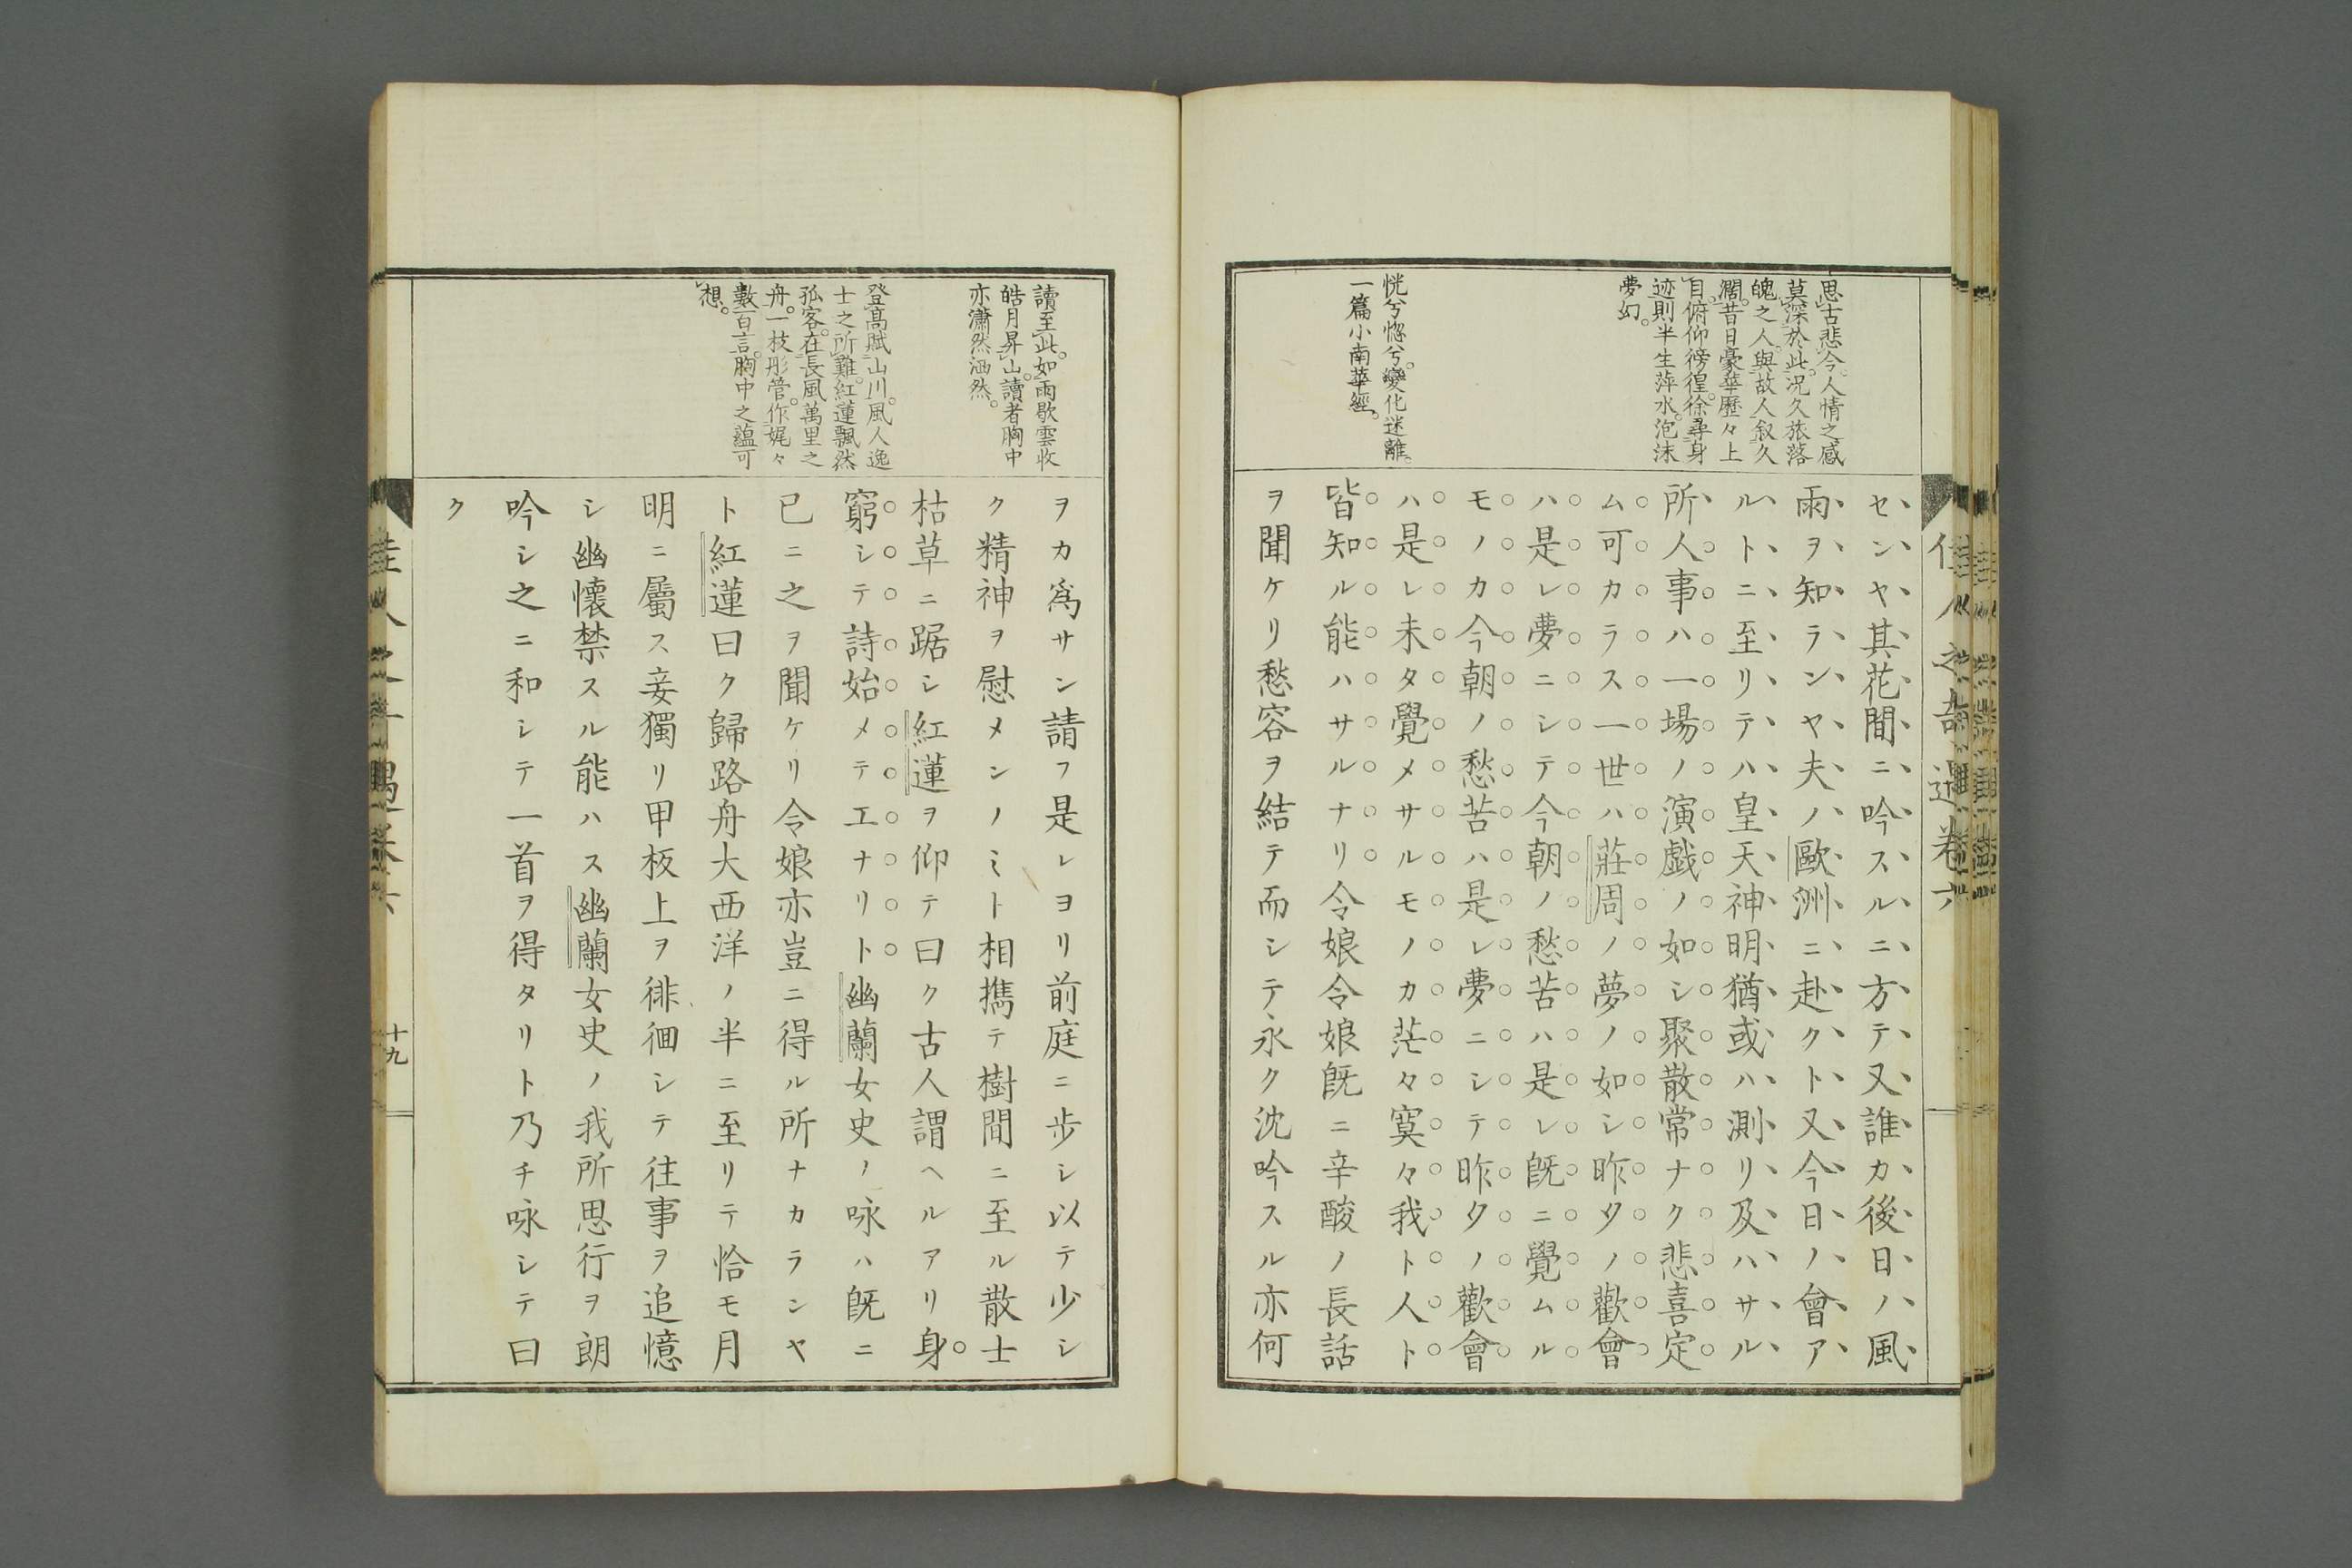 佳人之奇遇卷六
思古悲今人情之感
莫深於此况久旅落
魄之人與故人叙久
濶昔日豪華歷々上
目俯仰徬徨徐尋身
迹則半生萍水泡沫
夢幻
恍兮惚兮變化迷離
一篇小南華經
セシヤ其花間ニ吟スルニ方テ又誰カ後日ノ風
雨ヲ知ランヤ夫ノ歐洲ニ赴クト又今日ノ會ア
ルトニ至リテハ皇天神明猶或ハ測リ及ハサル
所人事ハ一場ノ演戲ノ如シ聚散常ナク悲喜定
ム可カラス一世ハ莊周ノ夢ノ如シ昨夕ノ歡會
ハ是レ夢ニシテ今朝ノ愁苦ハ是レ既ニ覺ムル
モノカ今朝ノ愁苦ハ是レ夢ニシテ昨夕ノ歡會
ハ是レ未タ覺メサルモノカ茫々寞々我ト人ト
皆知ル能ハサルナリ令娘令娘既ニ辛酸ノ長話
ヲ聞ケリ愁容ヲ結テ而シテ永ク沈吟スル亦何
讀至此如雨歇雲收
皓月昇山讀者胸中
亦瀟然洒然
登高賦山川風人逸
士之所難紅蓮飄然
孤客在長風萬里之
舟一枝彤管作娓々
數百言胸中之蘊可
想
ヲカ爲サン請フ是レヨリ前庭ニ步シ以テ少シ
ク精神ヲ慰メンノミト相携テ樹間ニ至ル散士
枯草ニ踞シ紅蓮ヲ仰テ曰ク古人謂ヘルアリ身
窮シテ詩始メテ工ナリト幽蘭女史ノ咏ハ既ニ
已ニ之ヲ聞ケリ令娘亦豈ニ得ル所ナカランヤ
ト紅蓮曰ク歸路舟大西洋ノ半ニ至リテ恰モ月
明ニ屬ス妾獨リ甲板上ヲ徘徊シテ往事ヲ追憶
シ幽懷禁スル能ハス幽蘭女史ノ我所思行ヲ朗
吟シ之ニ和シテ一首ヲ得タリト乃チ咏シテ曰
ク
佳人之奇遇卷六
十九